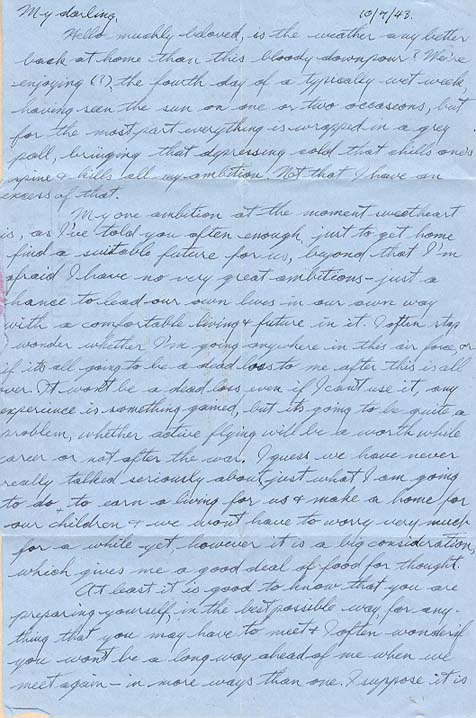 My darling, 10/7/43.
Hello muchly beloved, is the weather any better
back at home than this bloody downpour? We're
enjoying (?) the fourth day of a typically wet week,
having seen the sun on one or two occaseons, but
for the most part everything is wrapped in a grey
pall, bringing that depressing cold that chills one's
spine & kills all my ambition. Not that I have an
excess of that.
My one ambition at the moment sweetheart
is, as I've told you often enough, just to get home
find a suitable future for us, beyond that I'm
afraid I have no very great ambitions - just a
chance to lead our own lives in our own way
with a comfortable living & future in it. I often stop
wonder whether I'm going anywhere in this air force, or
if its all going to be a dead loss to me after this is all
over. It won't be a dead loss even if I can't use it, any
experience is something gained, but its going to be quite a
problem, whether active flying will be a worth while
career or not after the war. I guess we have never
really talked seriously about just what I am going
to do, to earn a living for us & make a home for
our children & we won't have to worry very much
for a while yet, however it is a big consideration,
which gives me a good deal of food for thought.
At least it is good to know that you are
preparing yourself in the best possible way, for any-
thing that you may have to meet & I often wonder if
you won't be a long way ahead of me when we
meet again - in more ways than one. I suppose it is